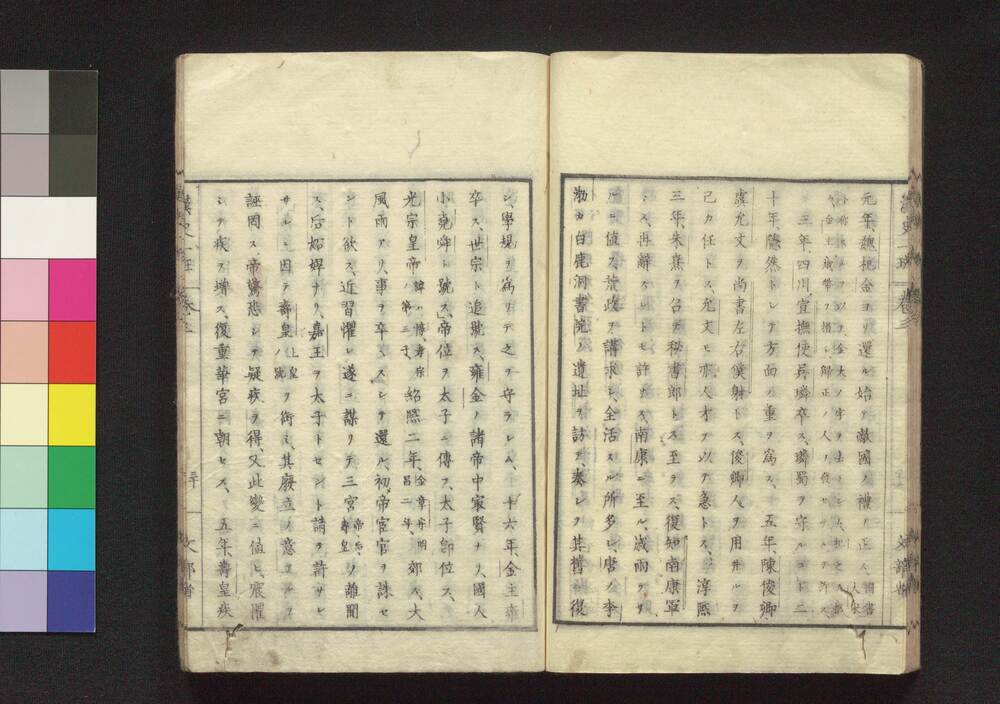 元年、魏杞金ヨリ還ル、始テ敵國ノ禮ヲ正ス、
三年、四川宣撫使呉璘卒ス、璘蜀ヲ守ルコト二
十年、隱然トシテ方面ノ重ヲ爲ス、五年、陳俊卿
虞允文ヲ尚書左右僕射トス、俊卿人ヲ用井ルヲ
己カ任トス、允文モ亦人才ヲ以テ急トス、淳熙
三年、朱熹ヲ召テ秘書郎トス、至ラス、復知南康軍
トス、再辭スレトモ許サス、南康ニ至ル、歳雨フラ
スニ値ス、荒政ヲ講求シ、全活スル所多シ、唐ノ李
渤カ白鹿洞書院ノ遺址ヲ訪テ、奏シテ其舊ニ復
シ、學規ヲ爲リテ之ヲ守ラシム、十六年、金主雍
卒ス、世宗ト追號ス、雍金ノ諸帝中家賢ナリ、國人
小堯舜ト號ス、帝位ヲ太子ニ傳フ、太子即位ス、
光宗皇帝、諱ハ惇、孝宗ノ第三子、紹熙二年、金章宗明昌二年、郊ス、大
風雨アリ、事ヲ卒ヘスシテ還ル、初帝宦官ヲ誅セ
ント欲ス、近習懼レ、遂ニ謀リテ三宮帝、后、壽皇ヲ離間
ス、后妬悍ナリ、嘉王ヲ太子トセント請フ、許サレ
サルニ因テ壽皇上皇ノ號ヲ銜ミ、其廢立ノ意アルヲ
誣罔ス、帝驚悲シテ疑疾ヲ得、又此變ニ値ヒ、震懼
シテ疾ヲ増ス、復重華宮ニ朝セス、五年、壽皇疾
漢史一班
卷之三
三十
文部省